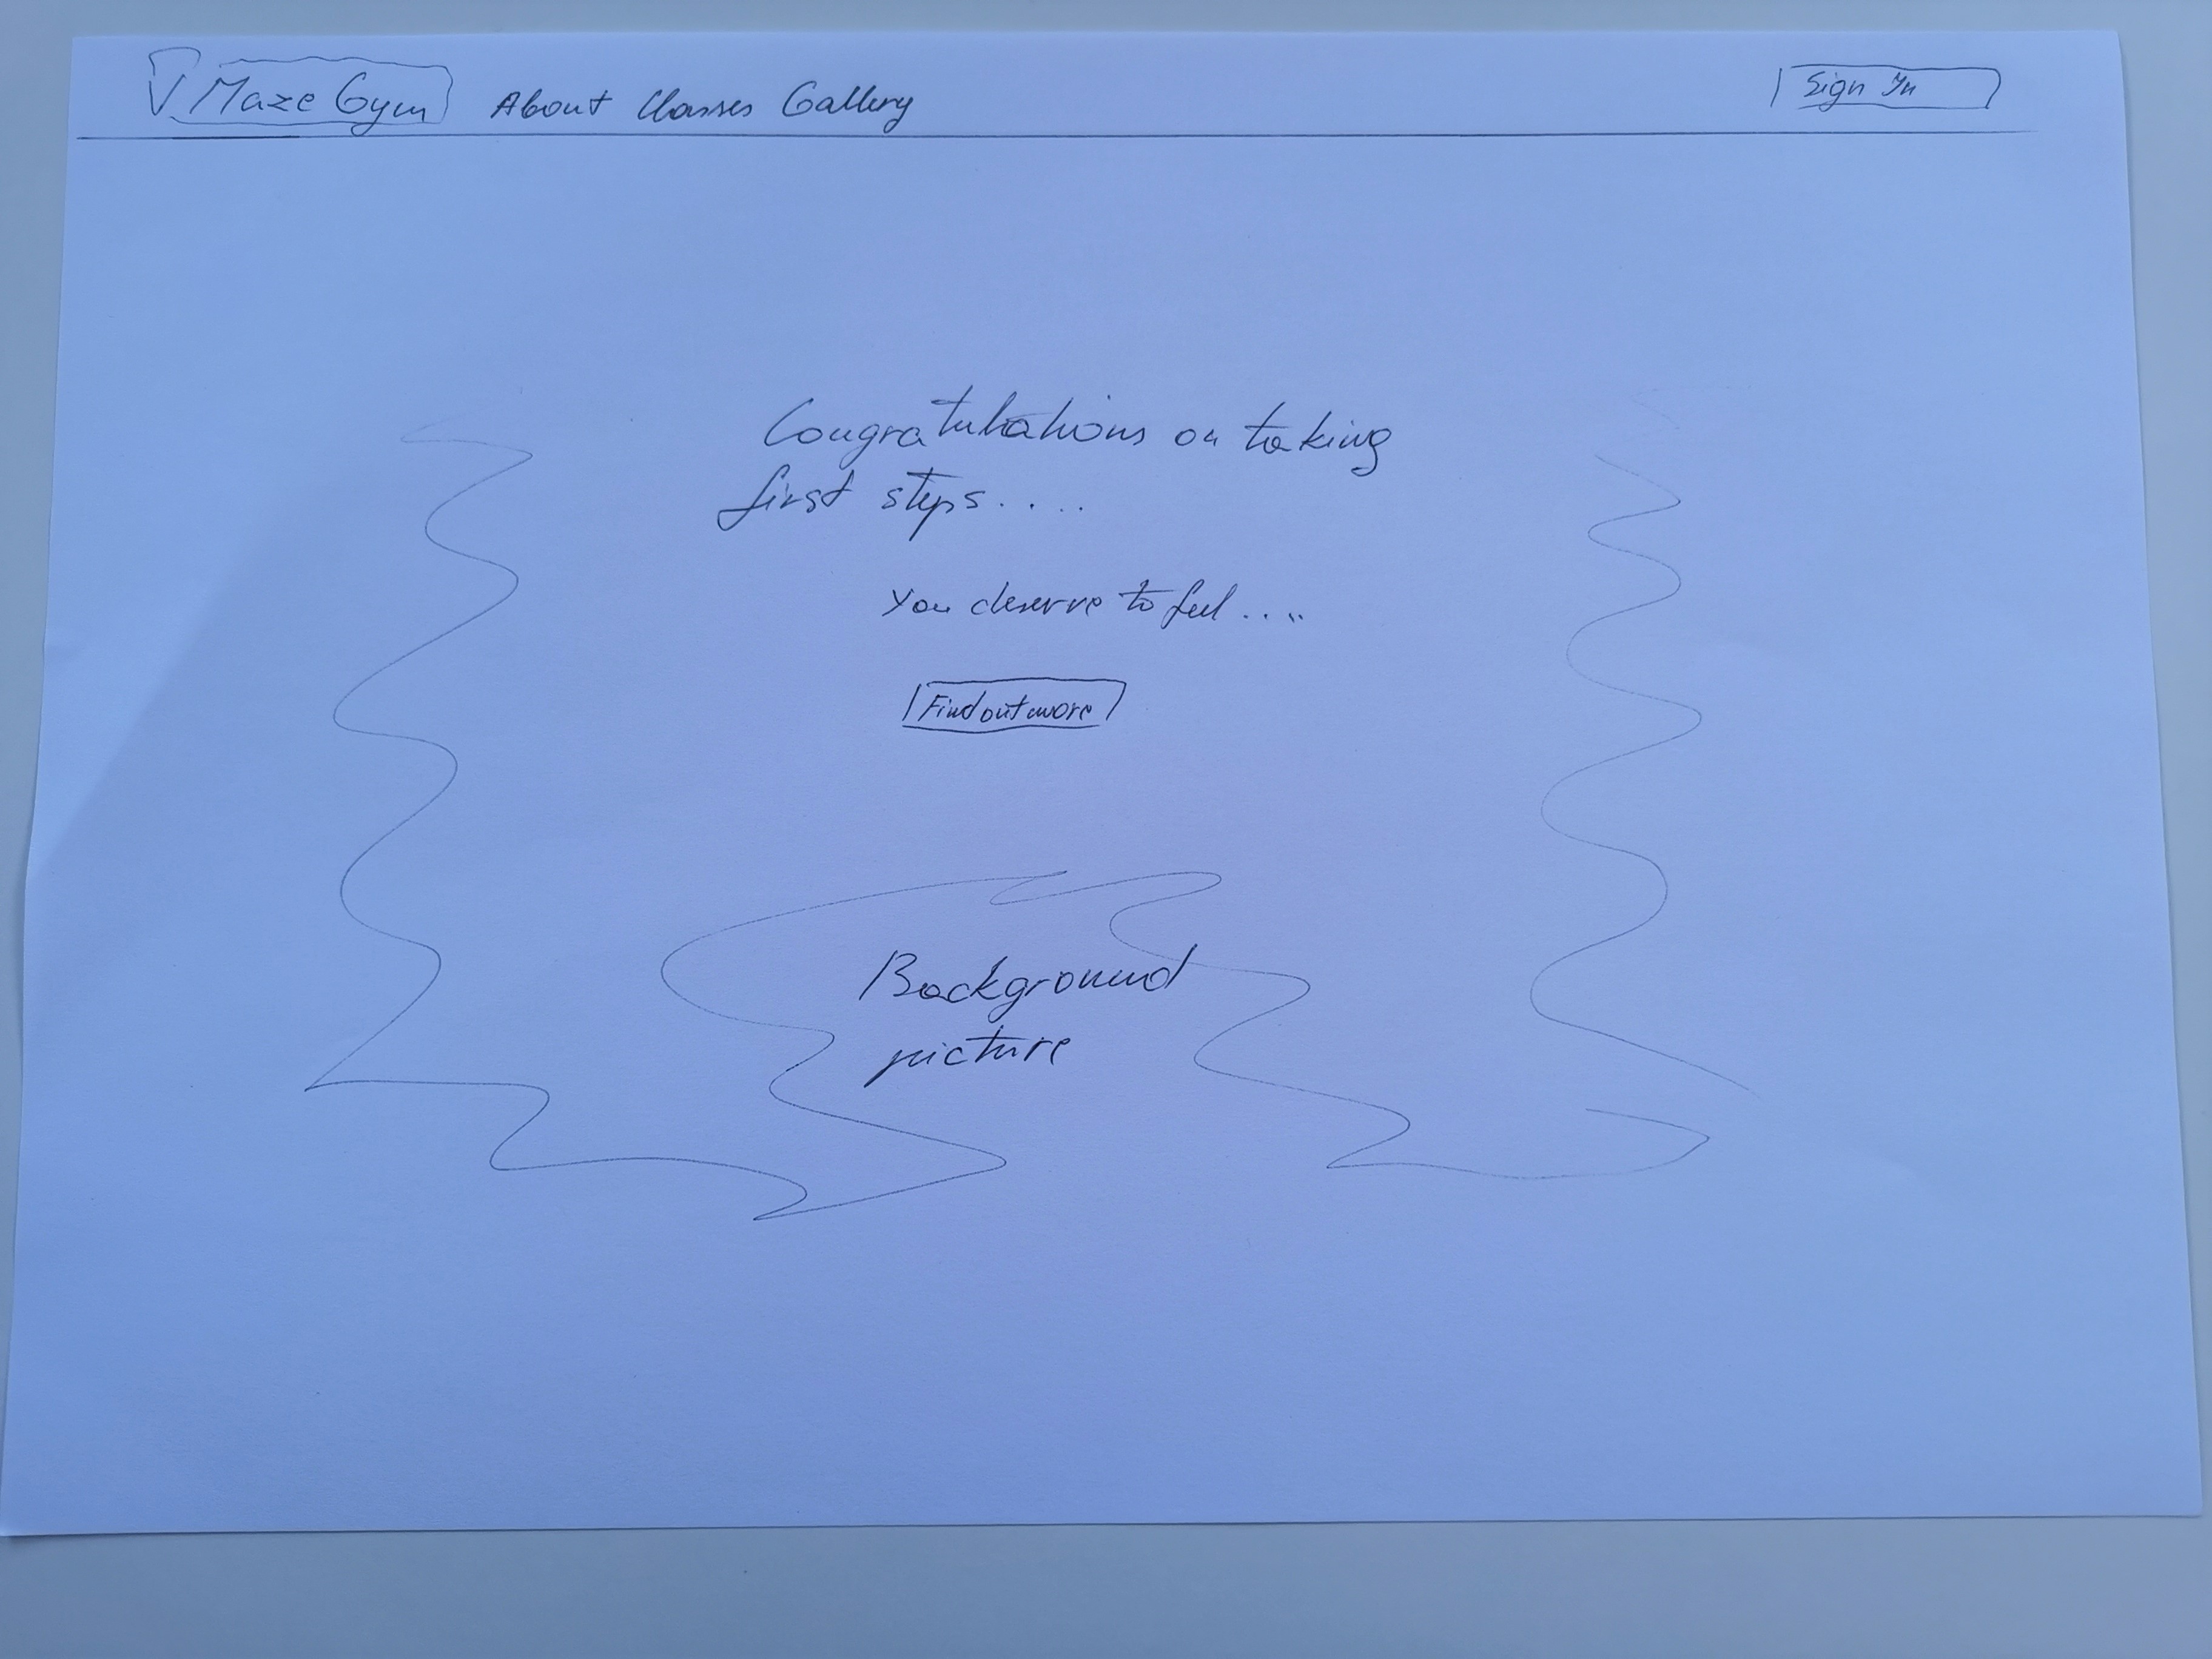 Maze Gym About Classes Gallery Sign In
Congratulations on taking
first steps.....
You deserve to feel....
Find out more
Background
picture